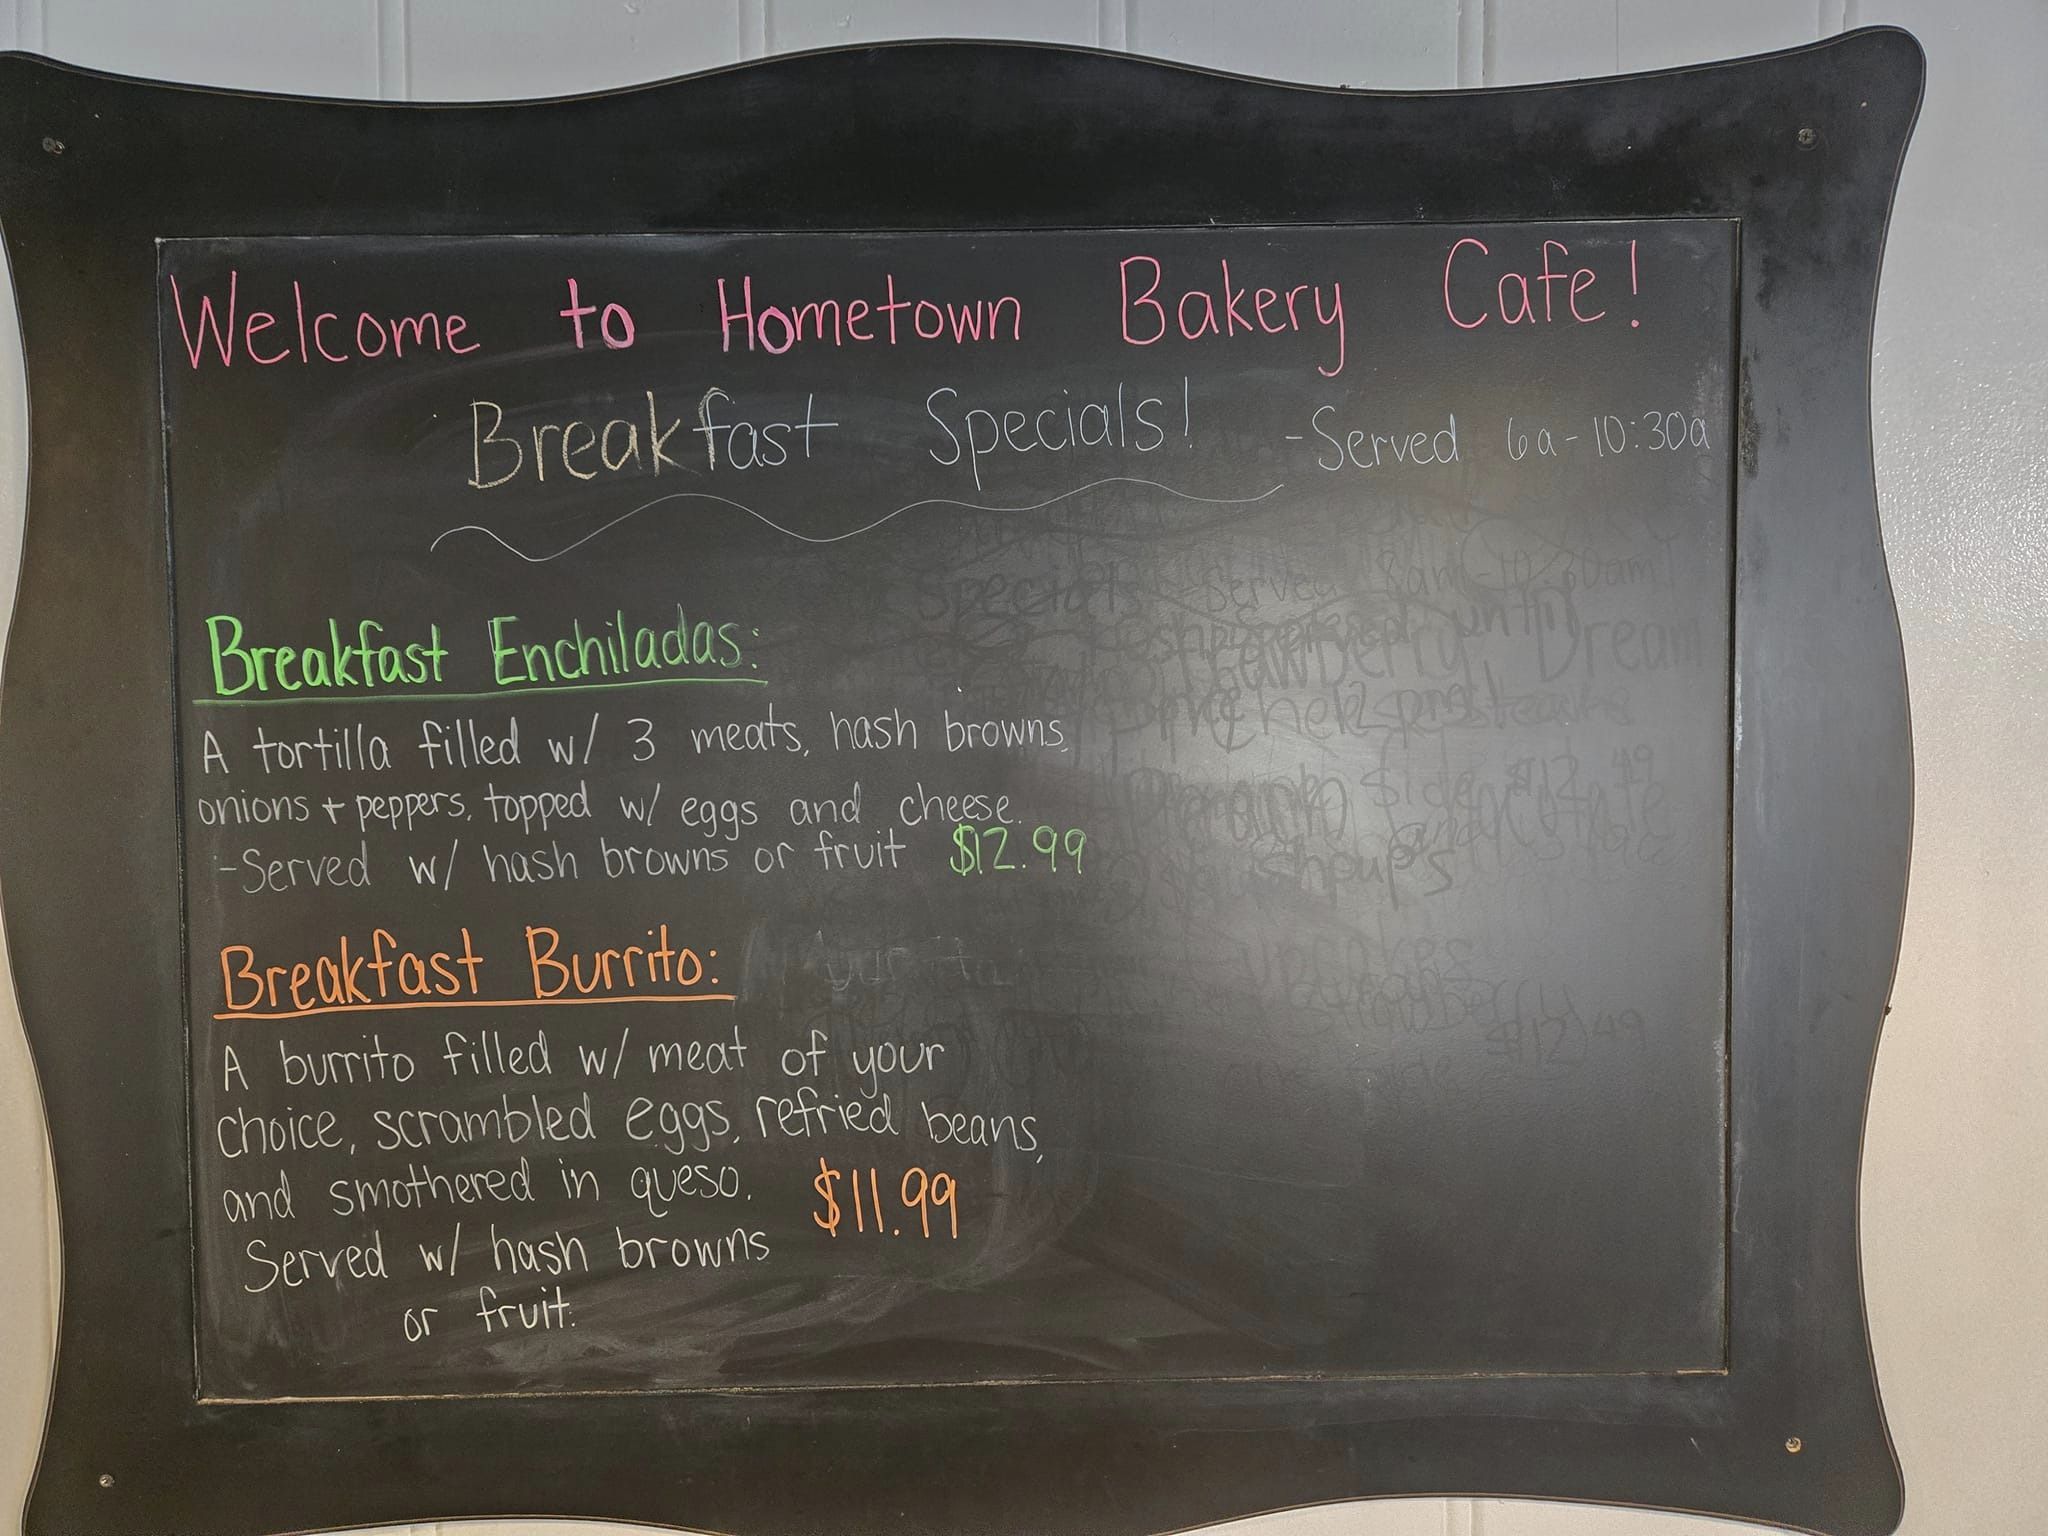 Welcome to Hometown Bakery Cafe!
Breakfast Specials! -Served 6a-10:30a
Breakfast Enchiladas:
A tortilla filled w/ 3 meats, hash browns,
onions + peppers, topped w/ eggs and cheese.
-Served w/ hash browns or fruit $12.99
Breakfast Burrito:
A burrito filled w/ meat of your
choice, scrambled eggs, refried beans,
and smothered in queso. $11.99
Served w/ hash browns
or fruit.